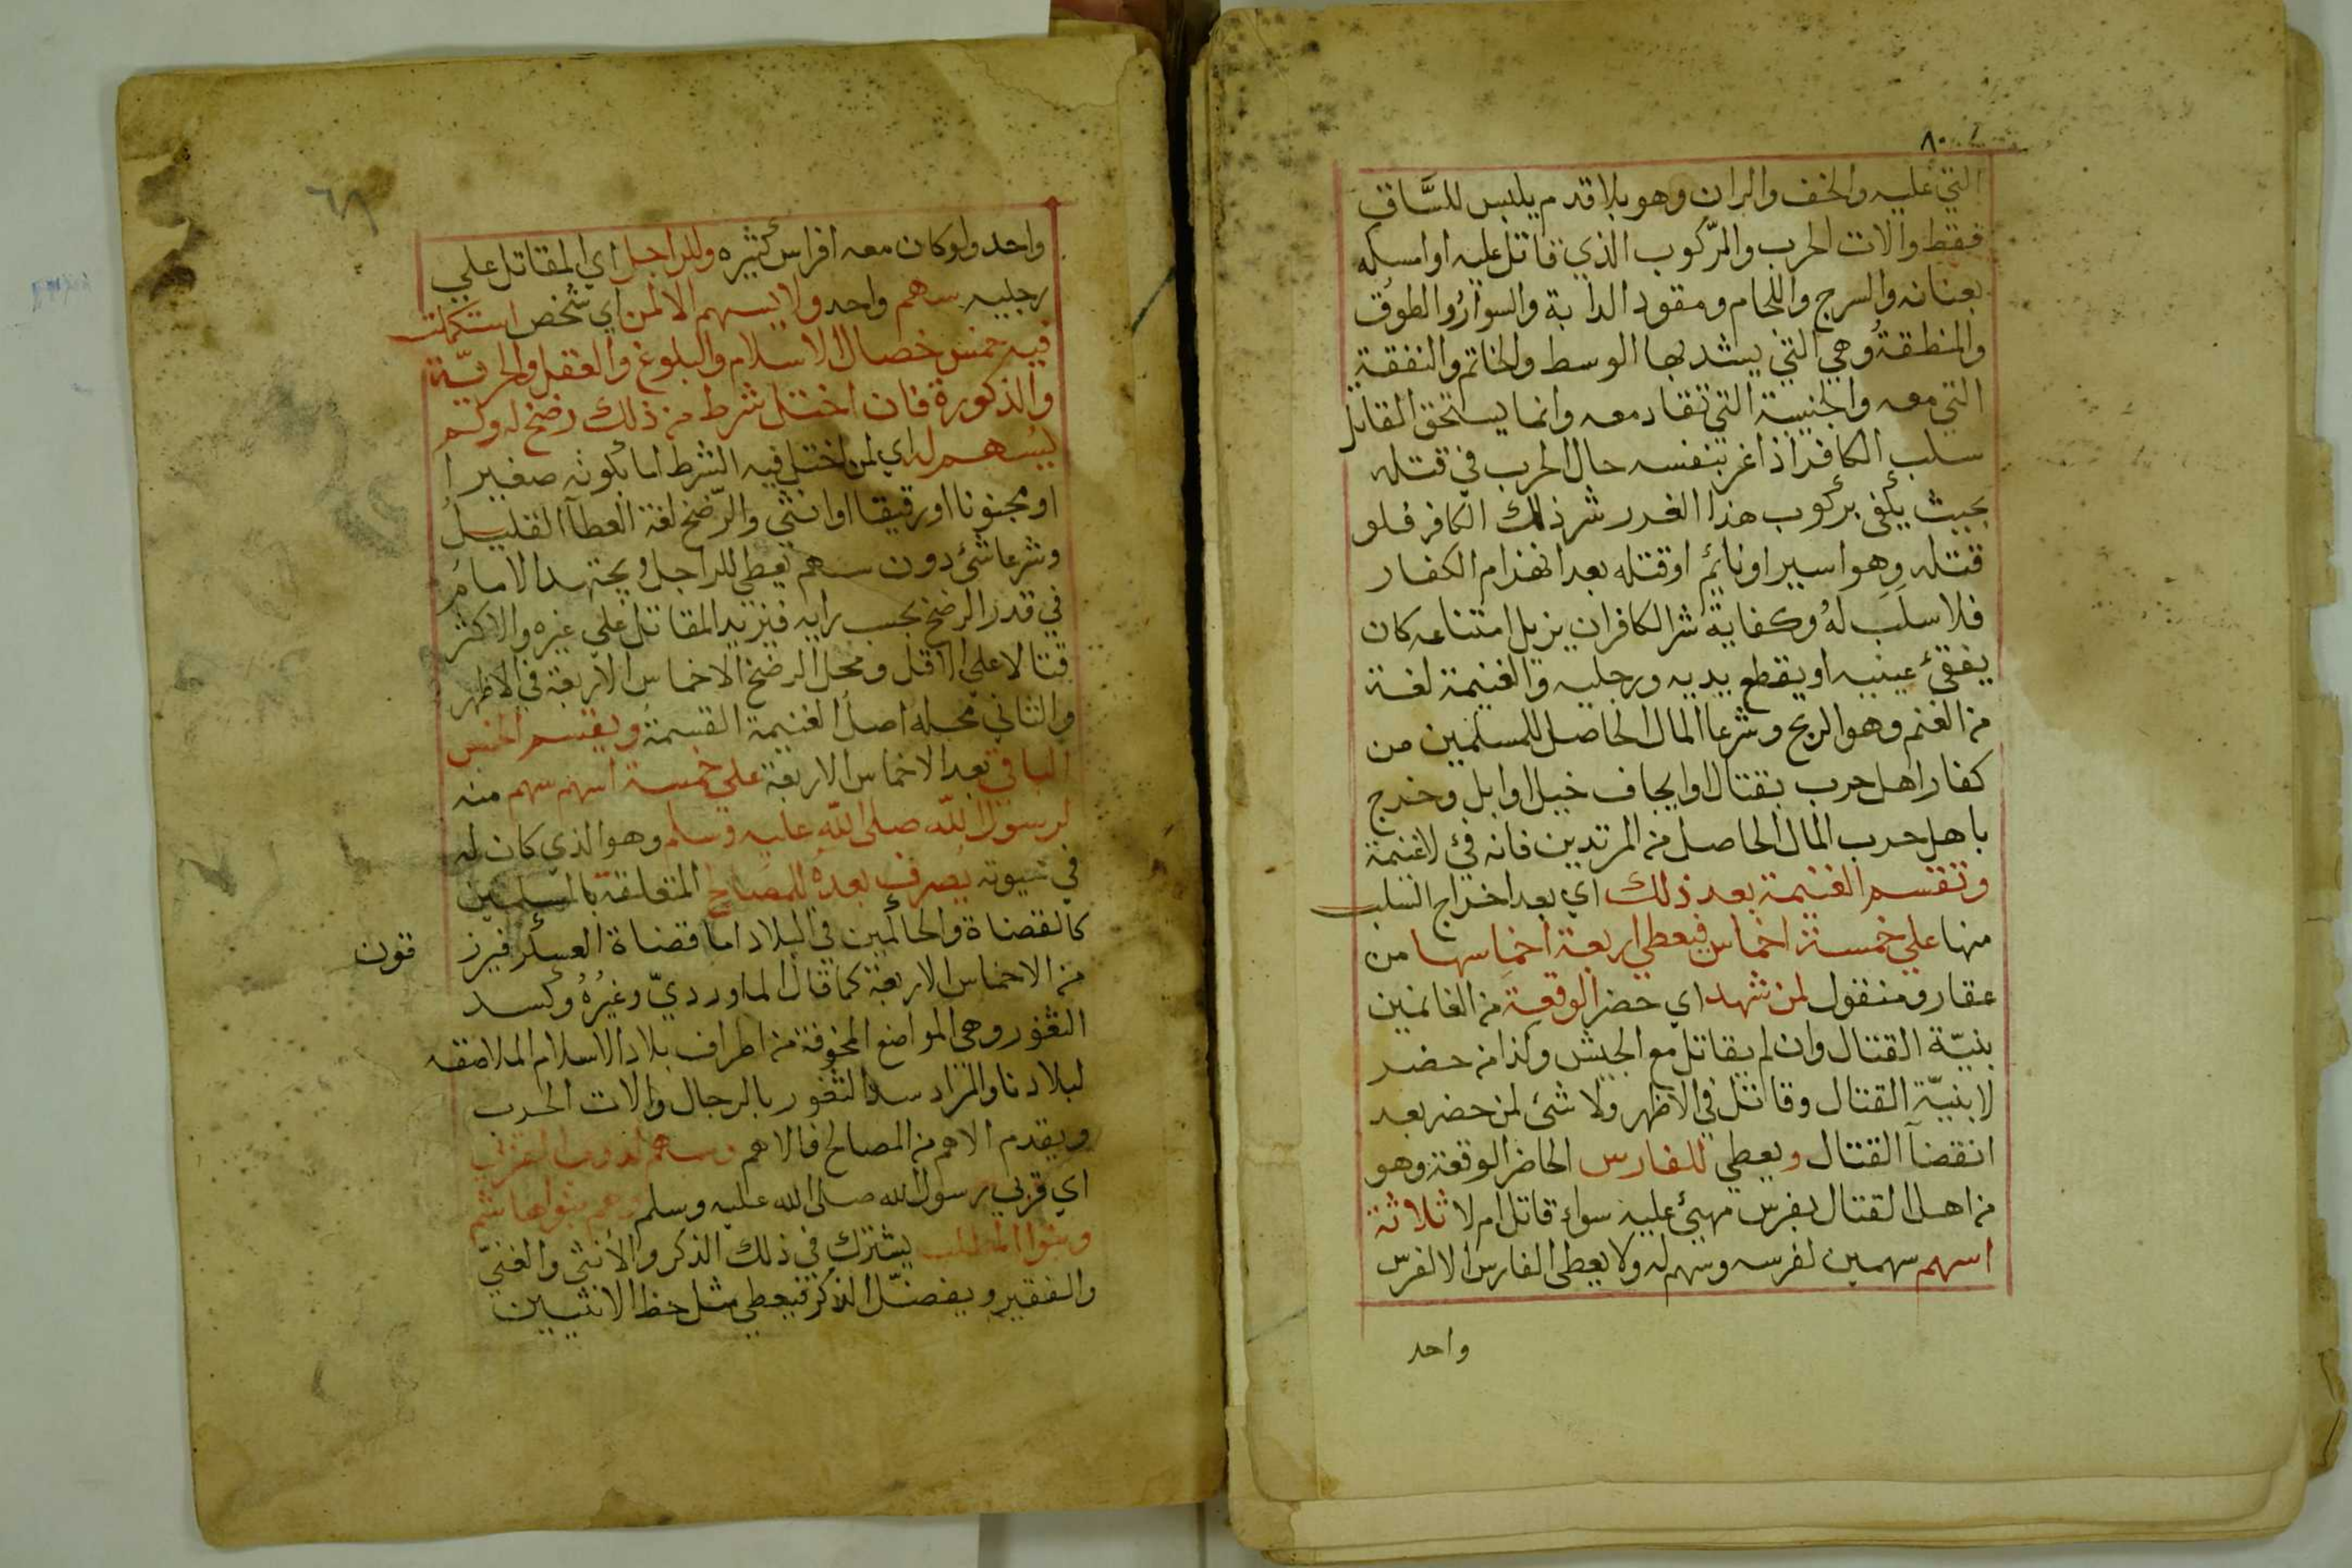 ٨٠
التي عليه والخف والران وهو بلا قدم يلبس للسَّاق
فقط والات الحرب والمركوب الذي قاتل عليه او امسكه
بعنانه والسرج واللجام ومقود الدابة والسوار والطوق
والمنطقة وهي التي يشد بها الوسط والخاتم والنفقة
التي معه والجنيبة التي تقاد معه وانما يستحق القاتل
سلب الكافر اذا غر بنفسه حال الحرب في قتله
بحيث يكفى بركوب هذا الغرر شر ذلك الكافر فلو
قتله وهو اسير او نائم او قتله بعد انهزام الكفار
فلا سلَب لهُ وكفاية شر الكافر ان يزيل امتناعه كان
يفقئ عينيه او يقطع يديه ورجليه والغنيمة لغة
من الغنم وهو الربح وشرعا المال الحاصل للمسلمين من
كفار اهل حرب بقتال او ايجاف خيل او ابل وخرج
باهل حرب المال الحاصل من المرتدين فانه فئ لا غنيمة
وتقسم الغنيمة بعد ذلك اي بعد اخراج السلب
منها على خمسة اخماس فيعطي اربعة اخماسها من
عقار ومنقول لمن شهد اي حضر الوقعة من الغانمين
بنيّة القتال وان لم يقاتل مع الجيش وكذا من حضر
لا بنيّة القتال وقاتل في الاظهر ولا شئ لمن حضر بعد
انقضآ القتال ويعطي للفارس الحاضر الوقعة وهو
من اهل القتال بفرس مهيئ عليه سواء قاتل ام لا ثلاثة
اسهم سهمين لفرسه وسهم له ولا يعطى الفارس الا لفرس
واحد
٦٨
واحد ولو كان معه افراس كثيره وللراجل اي المقاتل علي
رجليه سهم واحد ولا يسهم الا لمن اي شخص استكملت
فيه خمس خصال الاسلام والبلوغ والعقل والحريّة
والذكورة فان اختل شرط من ذلك رضخ له ولم
يسهم له اي لمن اختل فيه الشرط اما بكونه صغيرا
او مجنونا او رقيقا او انثي والرّضخ لغة العطآ القليل
وشرعا شئ دون سهم يعطي للراجل ويجتهد الامام
في قدر الرضخ بحسب رايه فيزيد المقاتل علي غيره والاكثر
قتالا علي الاقل ومحل الرضخ الاخماس الاربعة في الاظهر
والثاني محله اصل الغنيمة القسمة ويقسم الخمس
الباقي بعد الاخماس الاربعة على خمسة اسهم سهم منه
لرسول اللّه صلى اللّه عليه وسلم وهو الذي كان له
في يصرف بعده للمصالح المتعلقة بالمسلمين
كالقضاة والحاكمين في البلاد اما قضاة العسكر فيرز
قون
من الاخماس الاربعة كما قال الماورديّ وغيرُهُ وكسد
الثغور وهي المواضع المخوفة من اطراف بلاد الاسلام الملاصقه
لبلادنا والمراد سد الثغور بالرجال والات الحرب
ويقدم الاهم من المصالح فالاهم وسهم لذوي القربى
اي قربي رسول الله صلى الله عليه وسلم وهم بنوا هاشم
وبنوا المطلب يشترك في ذلك الذكر والأنثي والغنيّ
والفقير ويفضّل الذكر فيعطي مثل حظ الانثيين